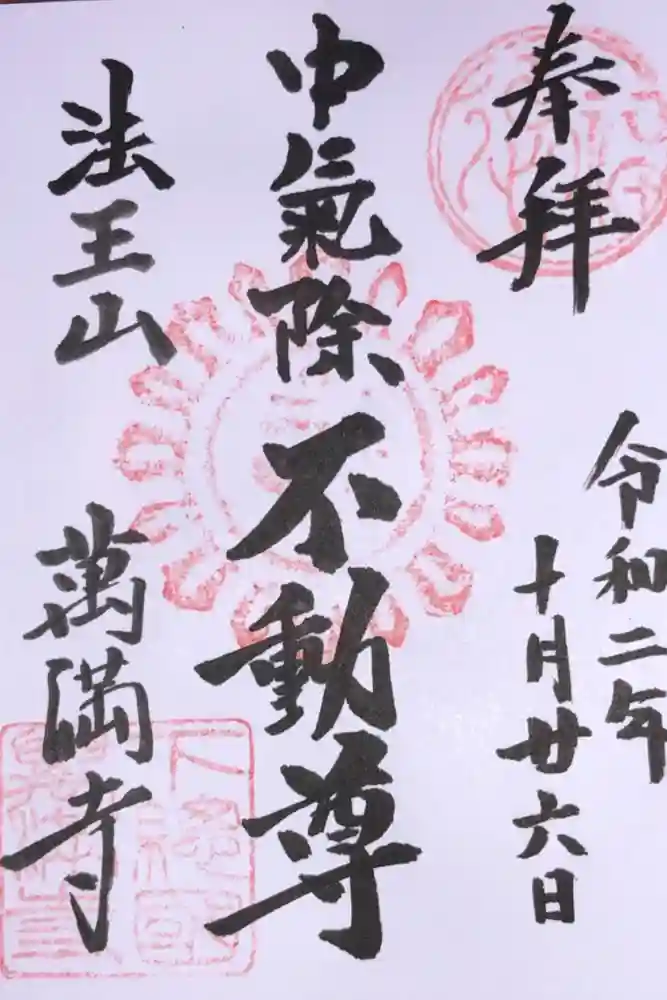 奉拝
令和二年
十月廿六日
中氣除不動尊
法王山
萬満寺